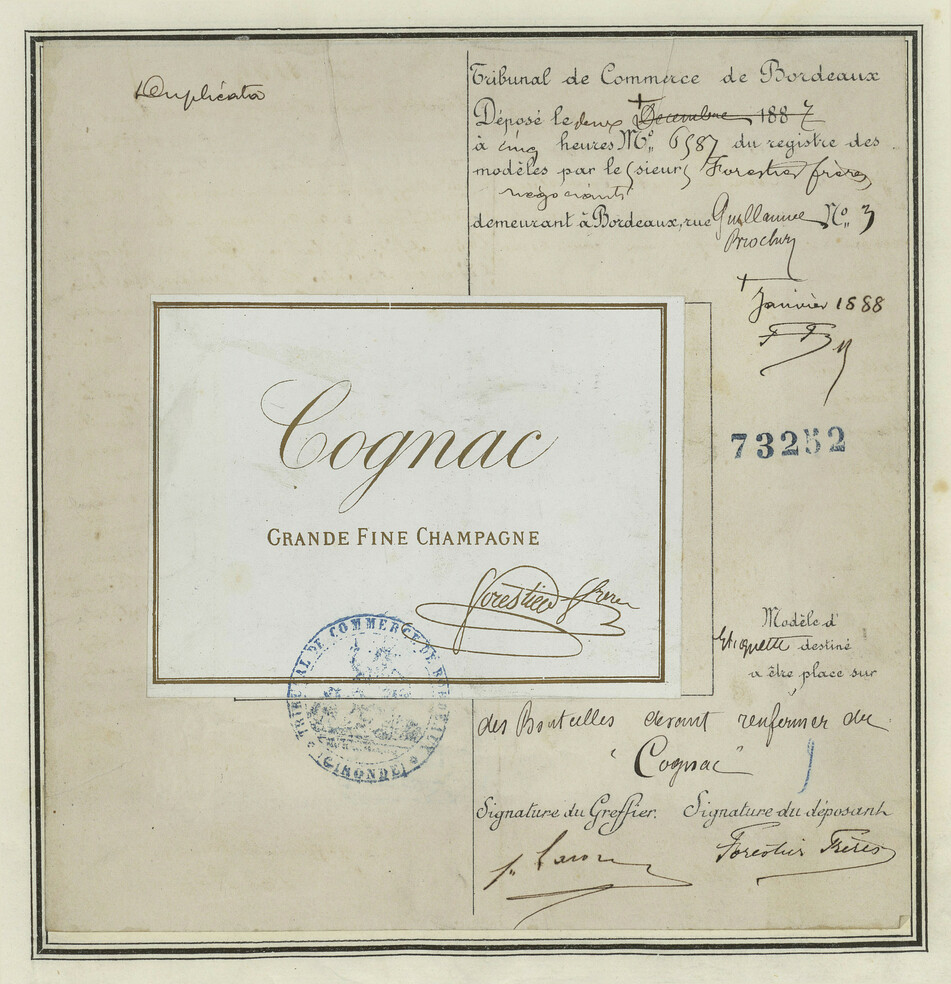 Duplicata
Tribunal de Commerce de Bordeaux
Déposé le deux Decembre 1887
à cinq heures N° 6587 du registre des
modèles par le sieurs Forestier frères
négociants
demeurant à Bordeaux, rue Guillaume N° 3
Brochon
Janvier 1888
73252
Cognac
GRANDE FINE CHAMPAGNE
Forestier Frères
TRIBUNAL DE COMMERCE DE BORDEAUX
(GIRONDE)
Modèle d'
Etiquette destiné
a être place sur
des Bouteilles devant renfermer du
"Cognac"
Signature du Greffier. Signature du déposant
Forestier Frères